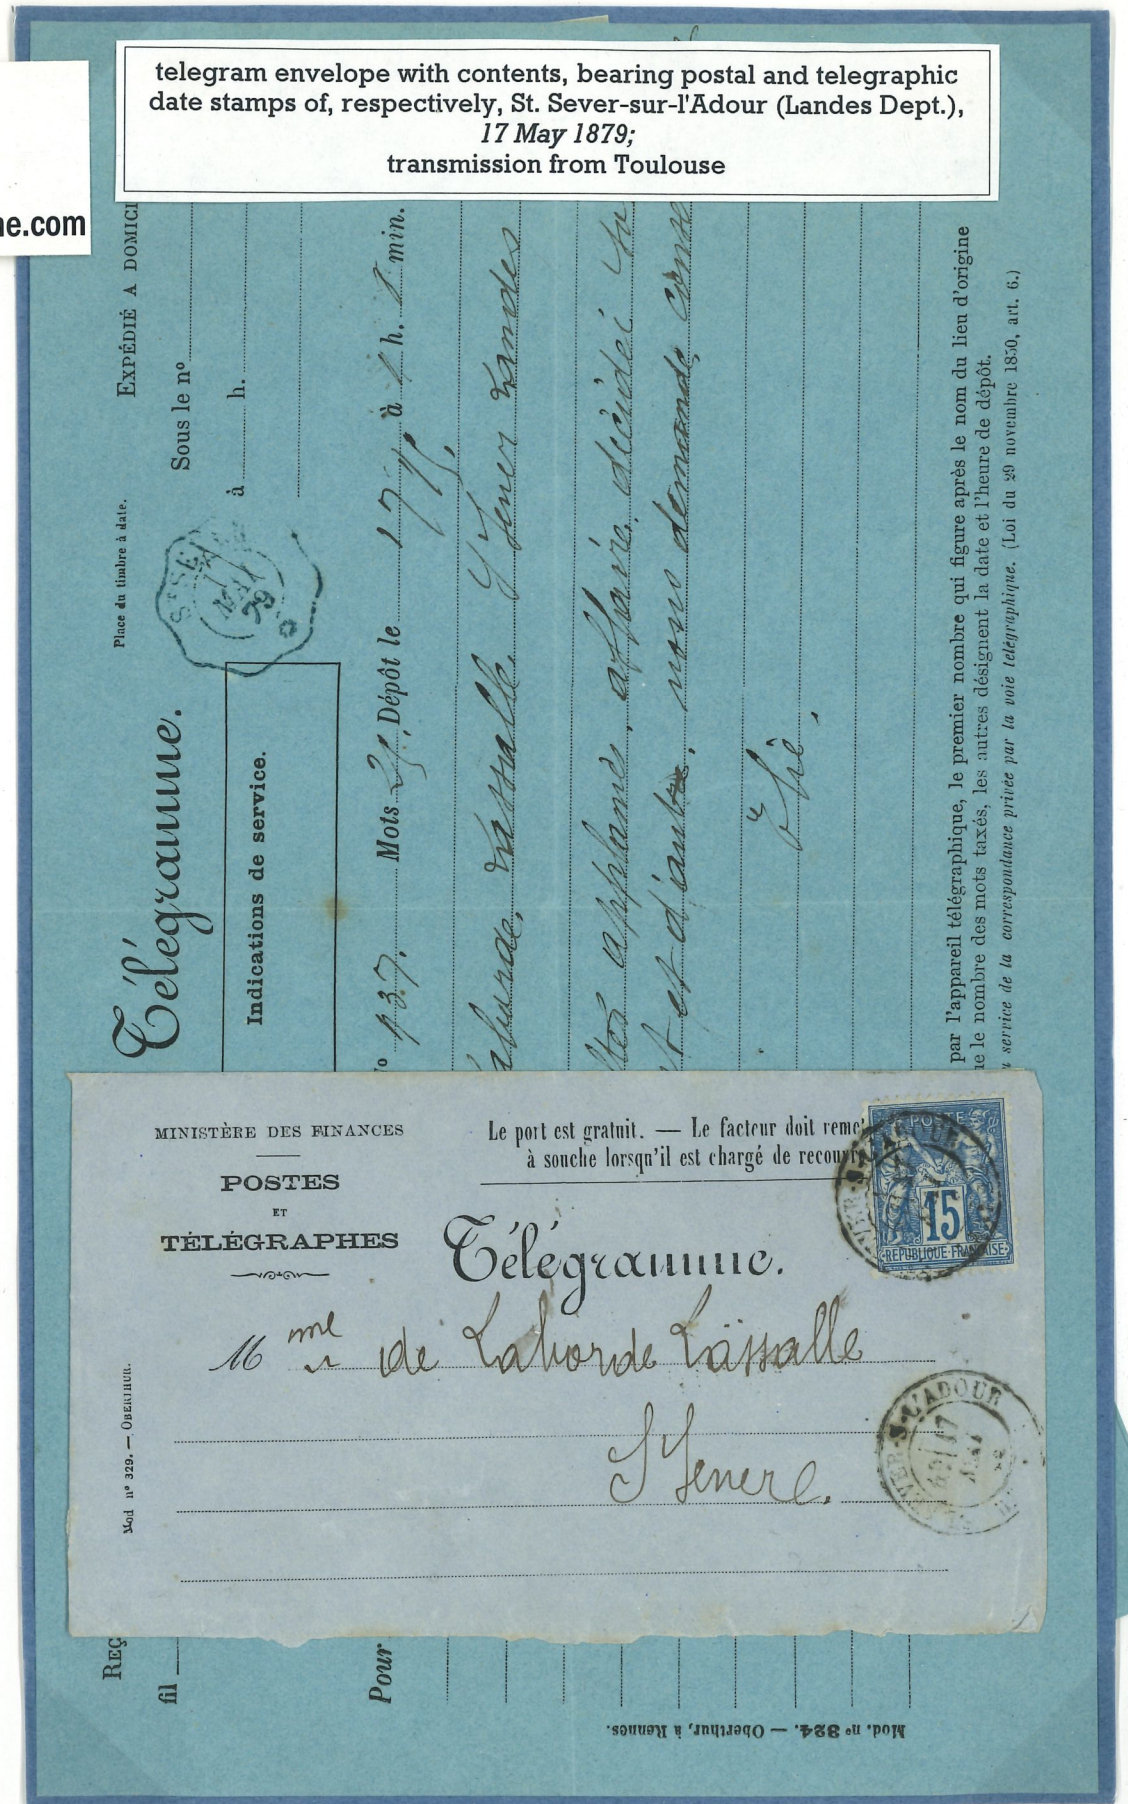 telegram envelope with contents, bearing postal and telegraphic
date stamps of, respectively, St. Sever-sur-l'Adour (Landes Dept.),
17 May 1879;
transmission from Toulouse
ne.com
Télégramme.
Place du timbre à date.
EXPÉDIÉ A DOMICI
Sous le nº
à h.
Indications de service.
ST SEVER
17
MAI
79
437. Mots 21, Dépôt le 17/5 à h. min.
Lassalle St Sever Landes
applanies, affaire décidée
et d'autre, nous demande
par l'appareil télégraphique, le premier nombre qui figure après le nom du lieu d'origine
ue le nombre des mots taxés, les autres désignent la date et l'heure de dépôt.
service de la correspondance privée par la voie télégraphique. (Loi du 29 novembre 1850, art. 6.)
MINISTÈRE DES FINANCES
POSTES
ET
TÉLÉGRAPHES
Le port est gratuit. — Le facteur doit reme
à souche lorsqu'il est chargé de recouvr
POSTE
15
REPUBLIQUE FRANÇAISE
Télégramme.
Mme de Laborde Lassalle
St Severe.
Mod nº 329. — OBERTHUR.
VER-S-L'ADOUR
17
MAI
REÇ
fil
Pour
Mod. nº 324. — Oberthur, à Rennes.